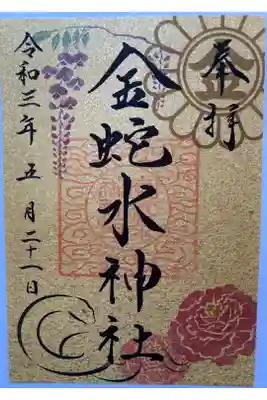 奉拝
金蛇水神社
令和三年五月二十一日
金